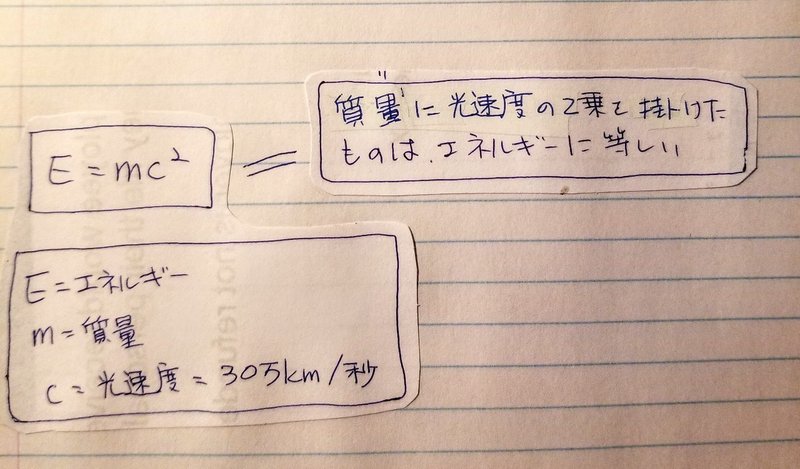 E = mc²
=
質量に光速度の2乗を掛けた
ものは、エネルギーに等しい
E = エネルギー
m = 質量
c = 光速度 = 30万km/秒